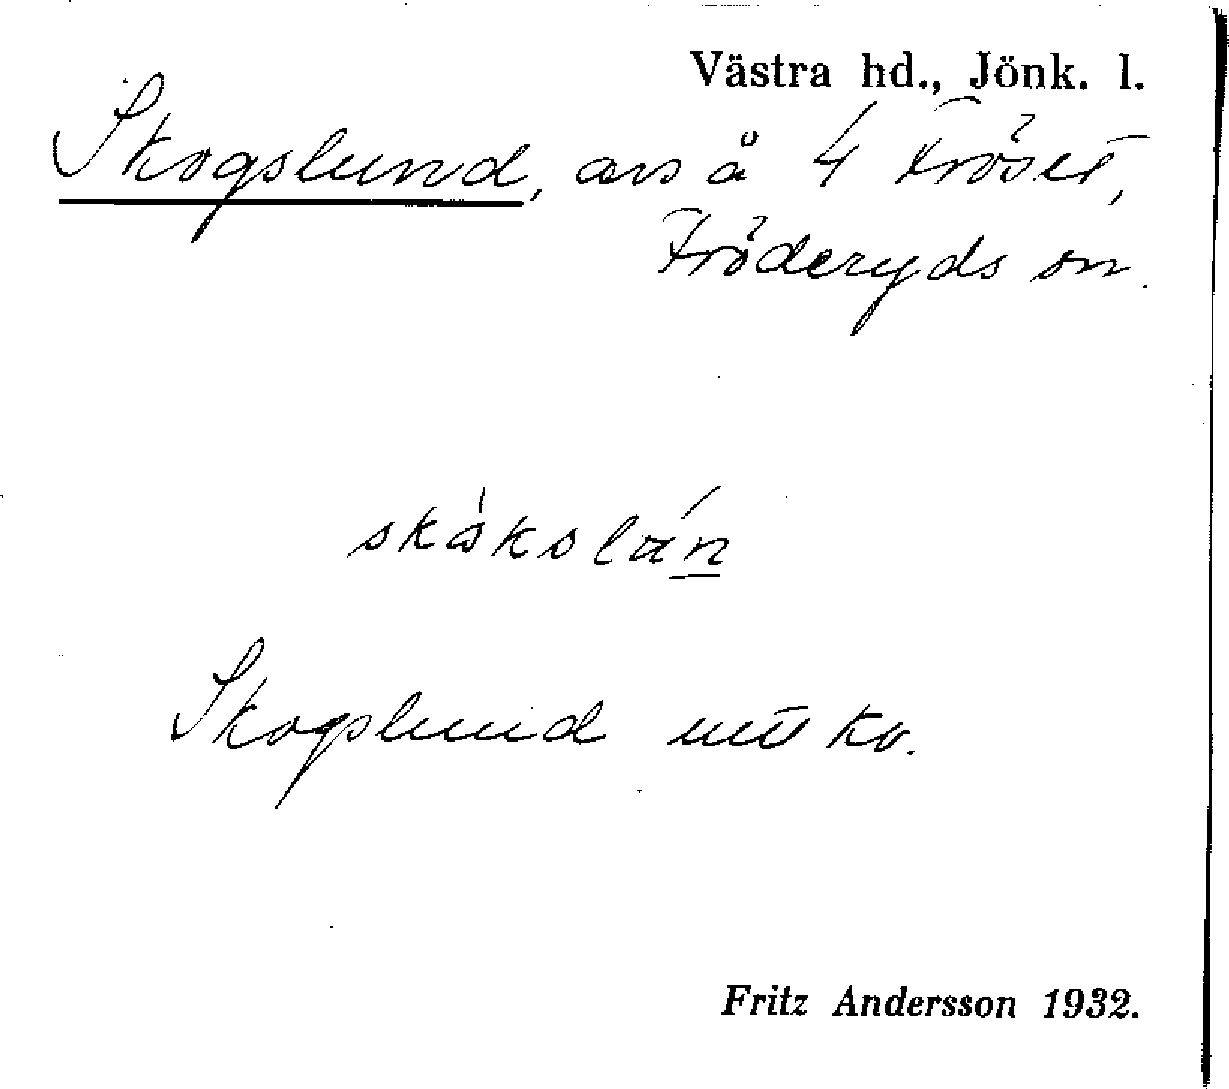 Västra hd., Jönk. l.
Skogslund, avs å 4 Fröset,
Fröderyds sn.
skåkslán
Skogslund
Fritz Andersson 1932.